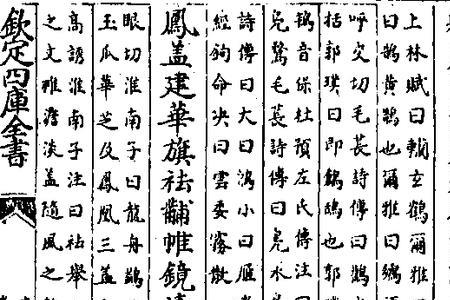 上林賦曰玄鶴爾雅
曰鵠黃鵠也爾雅曰鶬
呼交切毛萇詩傳曰
括郭璞曰即鶬鴰也郭
鴇音保杜預左氏傳注
鳧鷖毛萇詩傳曰鳧水
詩傳曰大曰鴻小曰雁
經鉤命決曰雲委霧散
鳳蓋建華旗袪黼帷鏡
眼切淮南子曰龍舟鷁
玉瓜華芝及鳳凰三蓋
高誘淮南子注曰袪舉
之文雅澹淡蓋隨風之
欽定四庫全書